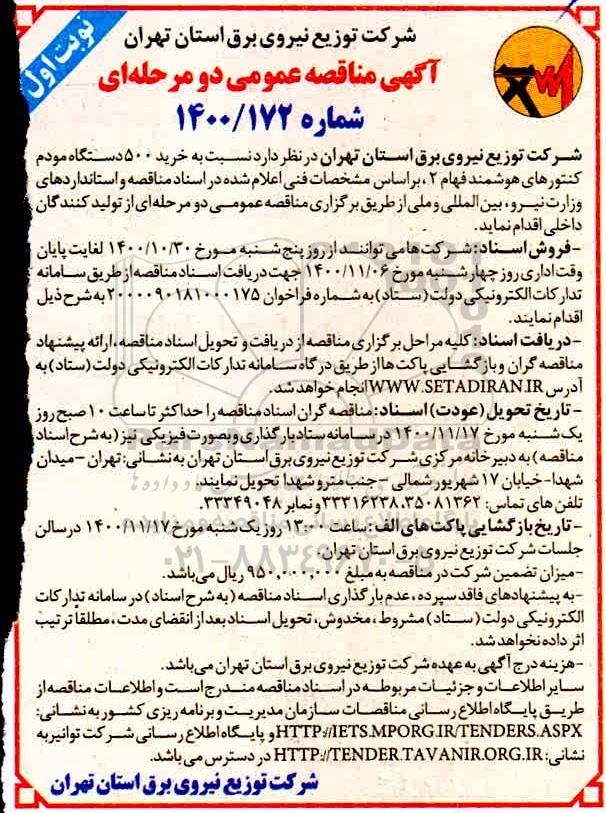 نوبت اول
شرکت توزیع نیروی برق استان تهران
آگهی مناقصه عمومی دو مرحله‌ای
شماره ۱۴۰۰/۱۷۲
شرکت توزیع نیروی برق استان تهران در نظر دارد نسبت به خرید ۵۰۰ دستگاه مودم
کنتورهای هوشمند فهام ۲، براساس مشخصات فنی اعلام شده در اسناد مناقصه و استانداردهای
وزارت نیرو، بین المللی و ملی از طریق برگزاری مناقصه عمومی دو مرحله‌ای از تولید کنندگان
داخلی اقدام نماید.
-فروش اسناد: شرکت‌ها می توانند از روز پنج شنبه مورخ ۱۴۰۰/۱۰/۳۰ لغایت پایان
وقت اداری روز چهارشنبه مورخ ۱۴۰۰/۱۱/۰۶ جهت دریافت اسناد مناقصه از طریق سامانه
تدارکات الکترونیکی دولت (ستاد) به شماره فراخوان ۲۰۰۰۰۹۰۱۸۱۰۰۰۱۷۵ به شرح ذیل
اقدام نمایند.
-دریافت اسناد: کلیه مراحل برگزاری مناقصه از دریافت و تحویل اسناد مناقصه، ارائه پیشنهاد
مناقصه گران و بازگشایی پاکت ها از طریق درگاه سامانه تدارکات الکترونیکی دولت (ستاد) به
آدرس WWW.SETADIRAN.IR انجام خواهد شد.
- تاریخ تحویل (عودت) اسناد: مناقصه گران اسناد مناقصه را حداکثر تا ساعت ۱۰ صبح روز
یک شنبه مورخ ۱۴۰۰/۱۱/۱۷ در سامانه ستاد بارگذاری و بصورت فیزیکی نیز (به شرح اسناد
مناقصه) به دبیرخانه مرکزی شرکت توزیع نیروی برق استان تهران به نشانی: تهران – میدان
شهدا- خیابان ۱۷ شهریور شمالی – جنب مترو شهدا تحویل نمایند.
تلفن های تماس: ۳۵۰۸۱۳۶۲،۳۳۳۱۶۲۳۸ و نمابر ۳۳۳۴۹۰۴۸.
-تاریخ بازگشایی پاکت های الف: ساعت ۱۳:۰۰ روز یک شنبه مورخ ۱۴۰۰/۱۱/۱۷ در سالن
جلسات شرکت توزیع نیروی برق استان تهران.
-میزان تضمین شرکت در مناقصه به مبلغ ۹۵۰,۰۰۰,۰۰۰ ریال می‌باشد.
-به پیشنهادهای فاقد سپرده، عدم بارگذاری اسناد مناقصه (به شرح اسناد) در سامانه تدارکات
الکترونیکی دولت (ستاد) مشروط، مخدوش، تحویل اسناد بعد از انقضای مدت، مطلقاً ترتیب
اثر داده نخواهد شد.
-هزینه درج آگهی به عهده شرکت توزیع نیروی برق استان تهران می‌باشد.
سایر اطلاعات و جزئیات مربوطه در اسناد مناقصه مندرج است و اطلاعات مناقصه از
طریق پایگاه اطلاع رسانی مناقصات سازمان مدیریت و برنامه ریزی کشور به نشانی:
HTTP://IETS.MPORG.IR/TENDERS.ASPX و پایگاه اطلاع رسانی شرکت توانیر به
نشانی: HTTP://TENDER.TAVANIR.ORG.IR در دسترس می باشد.
شرکت توزیع نیروی برق استان تهران